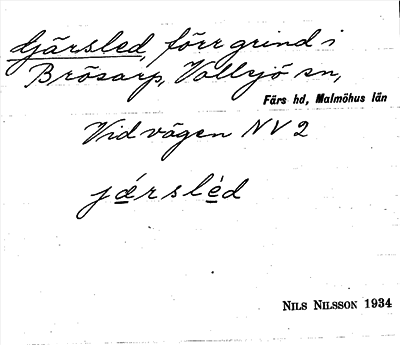 Gärsled, förr grind i
Brösarp, Vollsjö sn,
Färs hd, Malmöhus län
Vid vägen NV 2
jársléd
NILS NILSSON 1934